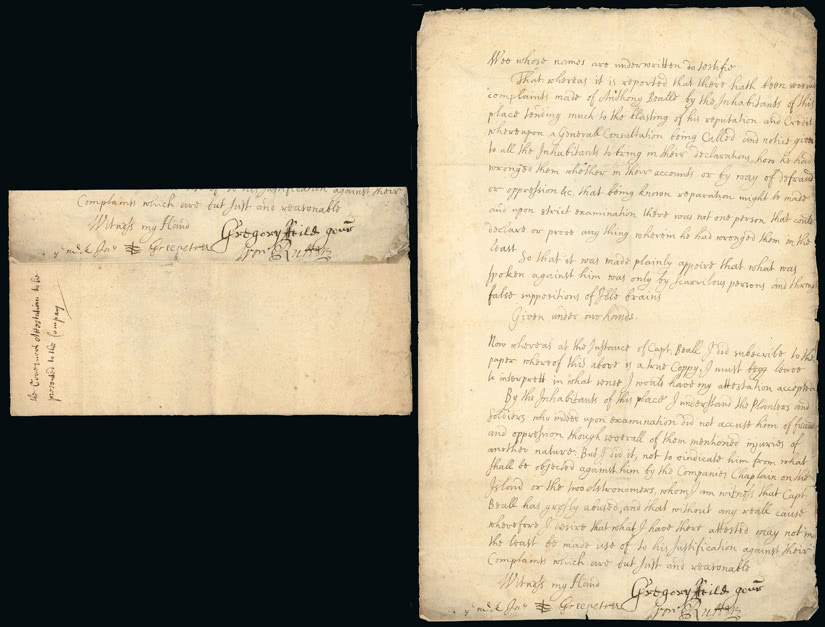 of to his Justification against their
Complaints which are but Just and reasonable
Witness my Hand
Gregory ffeild gour
Greepetree
the Governours Attestation to be
presented to the Company
Wee whose names are underwritten do testifie
That whereas it is reported that there hath been severa
complaints made of Anthony Bealle by the Inhabitants of this
place tending much to the blasting of his reputation and Credit
whereupon a Generall Consultation being Called and notice given
to all the Inhabitants to bring in their declarations, how he hath
wronged them whether in their accounts or by way of defraud
or oppression &c. that being known reparation might be made
and upon strict examination there was not one person that could
declare or prove any thing wherein he had wronged them in the
least
So that it was made plainly appeire that what was
spoken against him was only by scurvilous persons and
false suppositions of Idle brains
Given under our hands.
Now whereas at the Instance of Capt. Beall I did subscribe to the
paper whereof this above is a true Coppy, I must begg leave
to interprett in what sense I would have my attestation accepted
By the Inhabitants of this place I understand the Planters and
Soldiers who indeed upon examination did not accuse him of fraud
and oppression though severall of them mentioned injuries of
another nature: But I did it, not to vindicate him from what
shall be objected against him by the Companies Chaplain on the
Island or the two Astronomers, whom I am witness that Capt.
Beall has grosly abused, and that without any reall cause
wherefore I desire that what I have there attested may not in
the least be made use of to his Justification against their
Complaints which are but Just and reasonable
Witness my Hand
Gregory ffeild gour
Greepetree